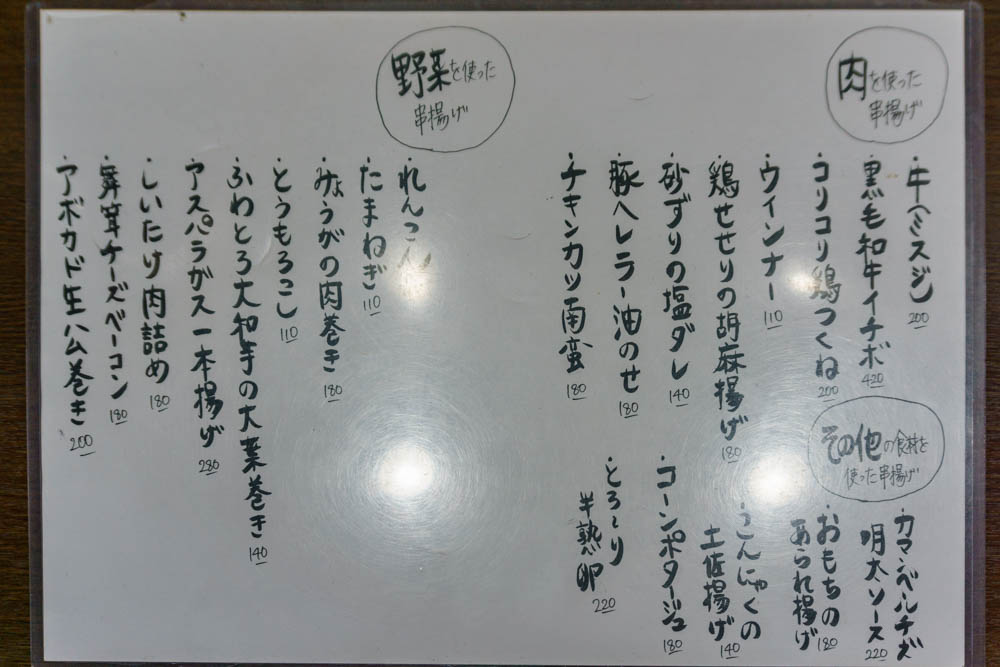 肉を使った
串揚げ
・牛(ミスジ) 200
・黒毛和牛イチボ 420
・コリコリ鶏つくね 200
・ウインナー 110
・鶏せせりの胡麻揚げ 180
・砂ずりの塩ダレ 140
・豚ヘレラー油のせ 180
・チキンカツ南蛮 180
その他の食材を
使った串揚げ
・カマンベールチーズ
明太ソース 220
・おもちの
あられ揚げ 180
・こんにゃくの
土佐揚げ 140
・コーンポタージュ 180
・とろ〜り
半熟卵 220
野菜を使った
串揚げ
・れんこん
・たまねぎ 110
・みょうがの肉巻き 180
・とうもろこし 110
・ふわとろ大和芋の大葉巻き 140
・アスパラガス一本揚げ 280
・しいたけ肉詰め 180
・舞茸チーズベーコン 180
・アボカド生ハム巻き 200